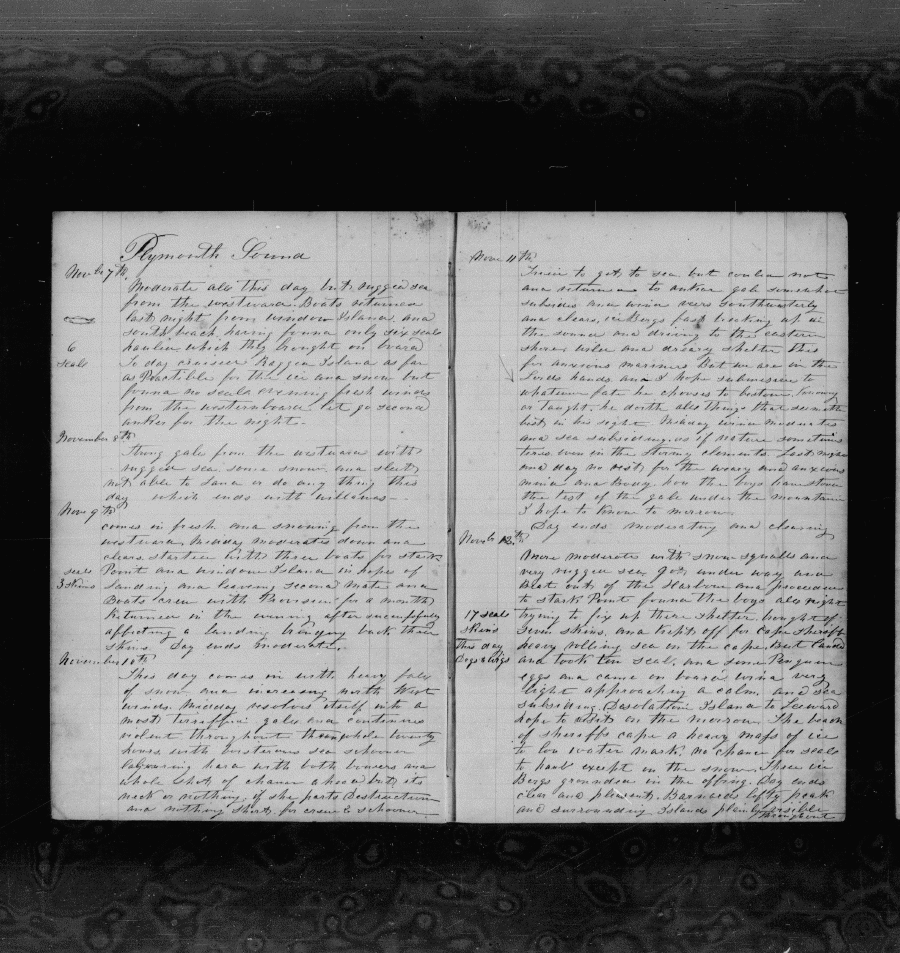 Plymouth Sound
Novbr 7th
Moderate all this day but rugged sea
from the westward. Boats returned
last night from window Island and
south beach having found only six seals
6 hauled which they brought on board
seals To day cruised Ragged Island as far
as Practible for the ice and snow but
found no seals evening fresh winds
from the westernboard let go second
anker for the night.
November 8th
Strong gale from the westward with
rugged sea some snow and sleet
not able to land or do any thing this
day which ends with williams
Nov 9th
comes in fresh and snowing from the
westward. Midday moderates down and
clears started with three boats for stark
seals Point and window Island in hopes of
3 skins landing and leaving second mate and
Boats crew with Provision for a month
Returned in the evening after
affecting a landing bringing back three
skins. Day ends moderate.
November 10th
This day comes in with heavy fall
of snow and increasing north West
winds. Midday resolves itself into a
most terriffic gale and continues
violent throughout the whole twenty
hours with boisterous sea schooner
laboring hard with both bowers and
whole shot of chain ahead but its
neck or nothing if she parts Destruction
and nothing short for crew & schooner
Nove 11th
Tried to get to sea but could not
and returned to anker gale somewhat
subsides and wind veers Southwesterly
and clears, ice Bergs fast breaking up in
the sound and driving to the eastern
shore wild and dreary shelter this
for anxious mariners But we are in the
Lords hands and I hope submissive to
whatever fate he chooses to bestow. Knowing
as taught, he doeth all things that seemeth
best in his sight. Midday wind moderates
and sea subsiding, as if nature sometimes
tires even in the stormy elements Last night
and day no rest for the weary and anxious
mind and body how the boys have stood
the test of the gale under the mountain
I hope to know to morrow.
Day ends moderating and clearing
Novbr 12th
More moderate with snow squalls and
very rugged sea got under way and
Beat out of the Harbour and proceeded
to stark Point found the boys all right
17 seals trying to fix up there shelter bought of
skins seven skins. and kept off for cape sheriff
this day heavy rolling sea on the cape. But landed
and took ten seal, and some Penguin
eggs and came on board wind very
light approaching a calm and sea
subsiding Desolation Island to Leeward
hope to visit on the morrow. The beach
of sheriffs cape a heavy mass of ice
to low water mark no chance for seals
to haul except on the snow. Three ice
Bergs grounded in the offing. Day ends
clear and pleasent. Barnards lofty peak
and surrounding Islands plainly visible
throughout